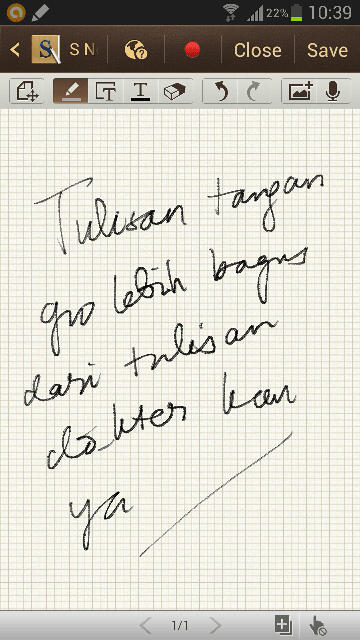 22% 10:39
S N Close Save
Tulisan tangan
gw lebih bagus
dari tulisan
dokter kan
ya
1/1